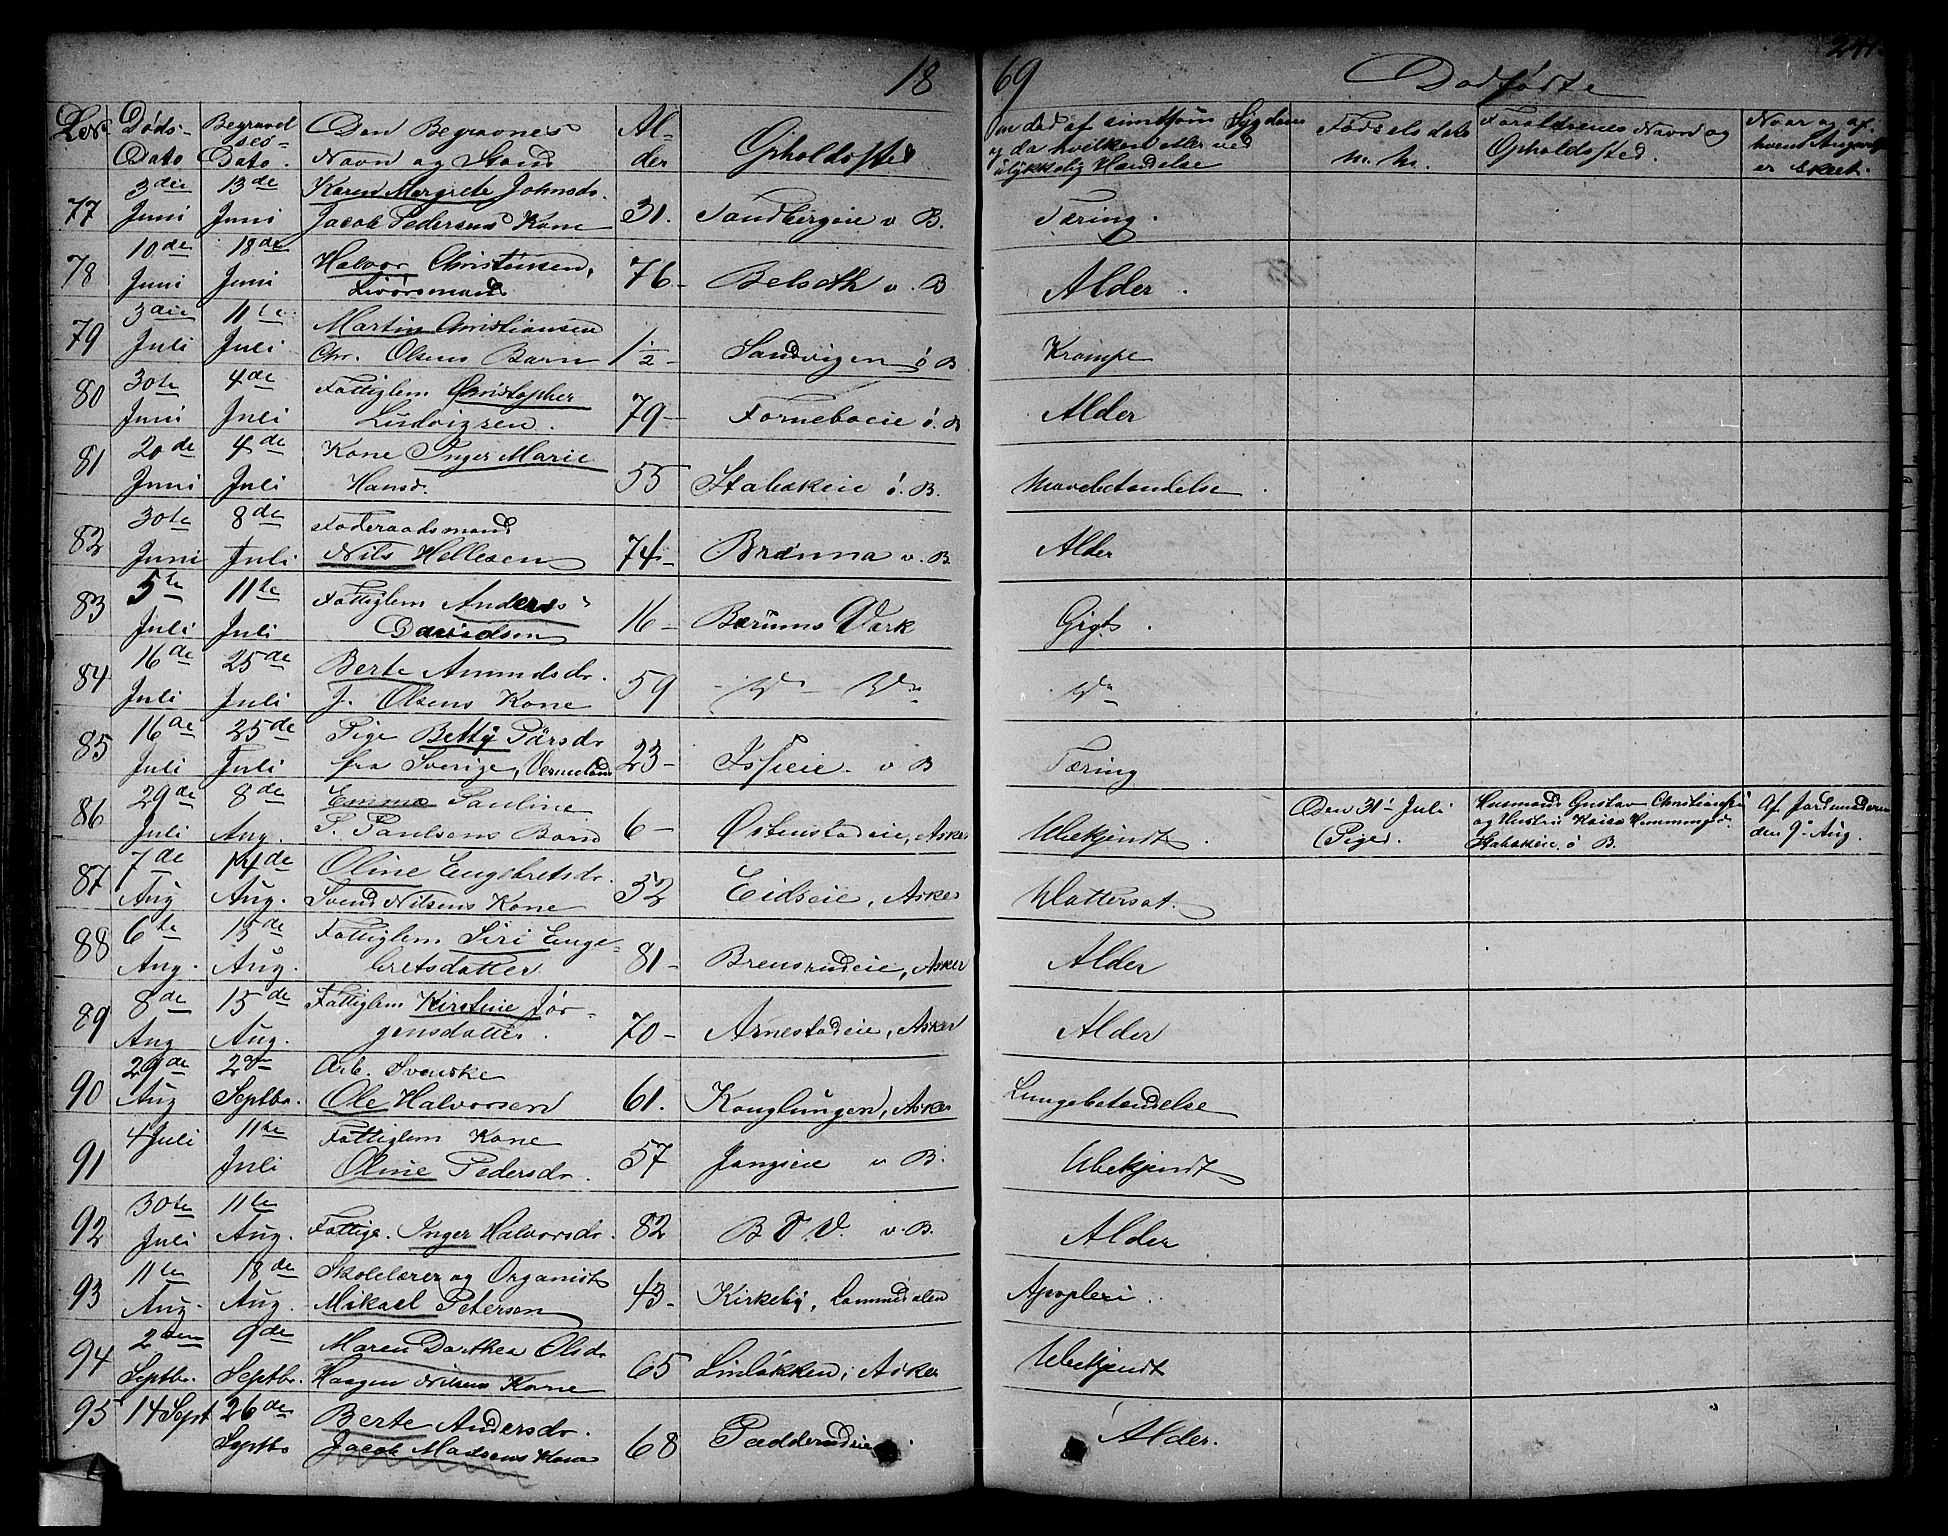 1869
Dødfødte
241.
Døds-Dato
Begravelses-Dato.
Den Begravnes Navn og Stand
Alder
Opholdssted
Om død af smitsom Sygdom og da hvilken eller ved ulykkelig Hændelse
Fødselsdato m. M.
Forældrenes Navn og Opholdssted.
Naar og af hvem Angivelse er skeet.
77 3die Juni 13de Juni Karen Margrete Johnsdr. Jacob Pedersens Kone 31. Sandbergeie v B. Tæring.
78 10de Juni 18de Juni Halvor Christensen, 76- Belseth v. B Alder.
79 3die Juli 11te Juli Martin Christiansen Chr. Olsens Barn 1 1/2- Sandvigen ö B Krampe
80 30te Juni 4de Juli Fattiglem Christopher Ludvigsen. 79- Forneboeie ö. B Alder
81 20de Juni 4de Juli Kone Inger Marie Hansd. 55 Stabækeie ö. B. Mavebetændelse.
82 30te Juni 8de Juli Føderaadsmand Nils Hellesen 74- Brænna v. B. Alder
83 5te Juli 11te Juli Fattiglem Anders Davidsen 16- Bærums Værk Gigt.
84 16de Juli 25de Juli Berte Amundsdr. J. Olsens Kone 59 - Do - Do Do
85 16de Juli 25de Juli Pige Betty Pärsdr fra Sverige, Vermeland 23- Isieie. v B Tæring
86 29de Juli 8de Aug. Emma Pauline P. Paulsens Barn 6- Østenstadeie, Asker Ubekjendt. Den 31 Juli (Pige). Husmand Gustav Christiansen og Hustru Kaisa Hemmingsd. Stabækeie ö B. Af Jordmoderen den 9 Aug.
87 7de Aug 14de Aug. Oline Engebretsdr. Svend Nilsens Kone 52 Eidseie, Asker Wattersot.
88 6te Aug. 15de Aug. Fattiglem Siri Engebretsdatter 81- Brensrudeie, Asker Alder
89 8de Aug 15de Aug. Fattiglem Kirstine Jørgensdatter. 70- Arnestadeie, Asker Alder
90 29de Aug 2den Septbr. Arb. Svenske Ole Halvorsen 61. Konglungen, Asker Lungebetændelse
91 4 Juli 11te Juli Fattiglem Kone Oline Pedersdr. 57 Jongseie v B. Ubekjendt
92 30te Juli 11te Aug. Fattige. Inger Halvorsdr. 82 B V. v. B. Alder.
93 11te Aug. 18de Aug. Skolelærer og Organist Mikael Petersen 43- Kirkeby, Lommedalen Apoplexi.
94 2den Septbr. 9de Septbr. Maren Dorthea Olsdr Haagen Nilsens Kone 65 Linløkken, Asker Ubekjendt
95 14 Sept 26de Septbr Berte Andersdr. Jacob Madsens Kone 68 Alder.